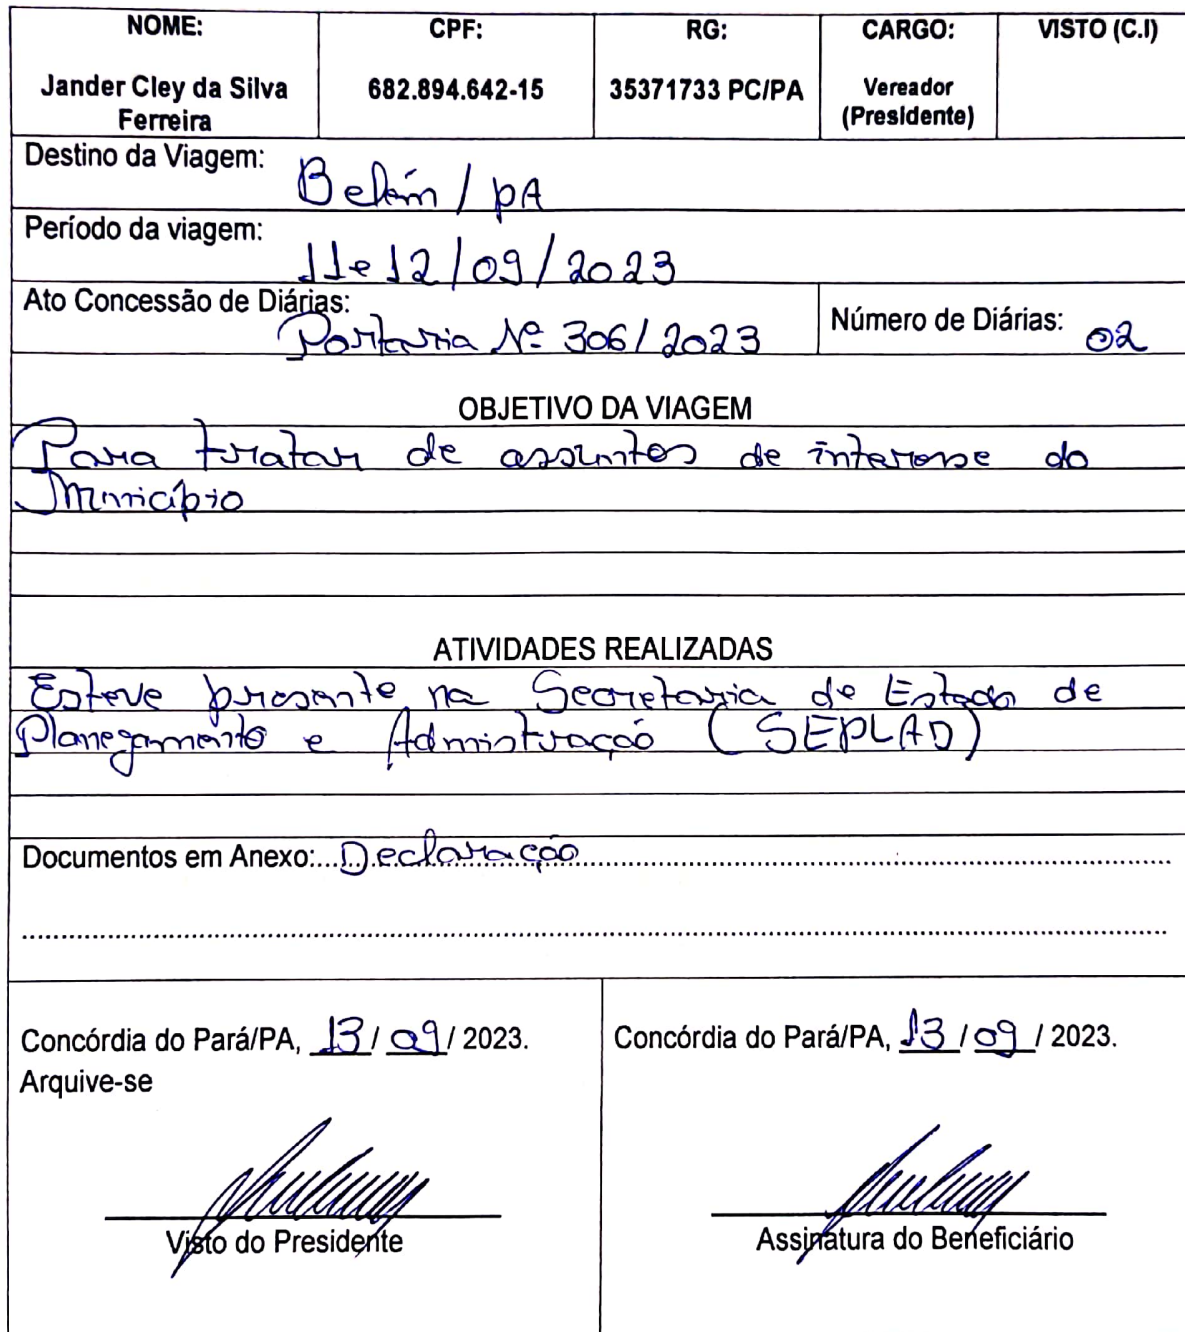 NOME: CPF: RG: CARGO: VISTO (C.I)
Jander Cley da Silva Ferreira 682.894.642-15 35371733 PC/PA Vereador (Presidente)
Destino da Viagem: Belém / PA
Período da viagem: 11 e 12/09/2023
Ato Concessão de Diárias: Portaria Nº 306/2023 Número de Diárias: 02
OBJETIVO DA VIAGEM
Para tratar de assuntos de interesse do
Município
ATIVIDADES REALIZADAS
Esteve presente na Secretaria de Estado de
Planegamento e Admistração (SEPLAD)
Documentos em Anexo: Declaração
Concórdia do Pará/PA, 13/09/2023.
Arquive-se
Visto do Presidente
Concórdia do Pará/PA, 13/09/2023.
Assinatura do Beneficiário